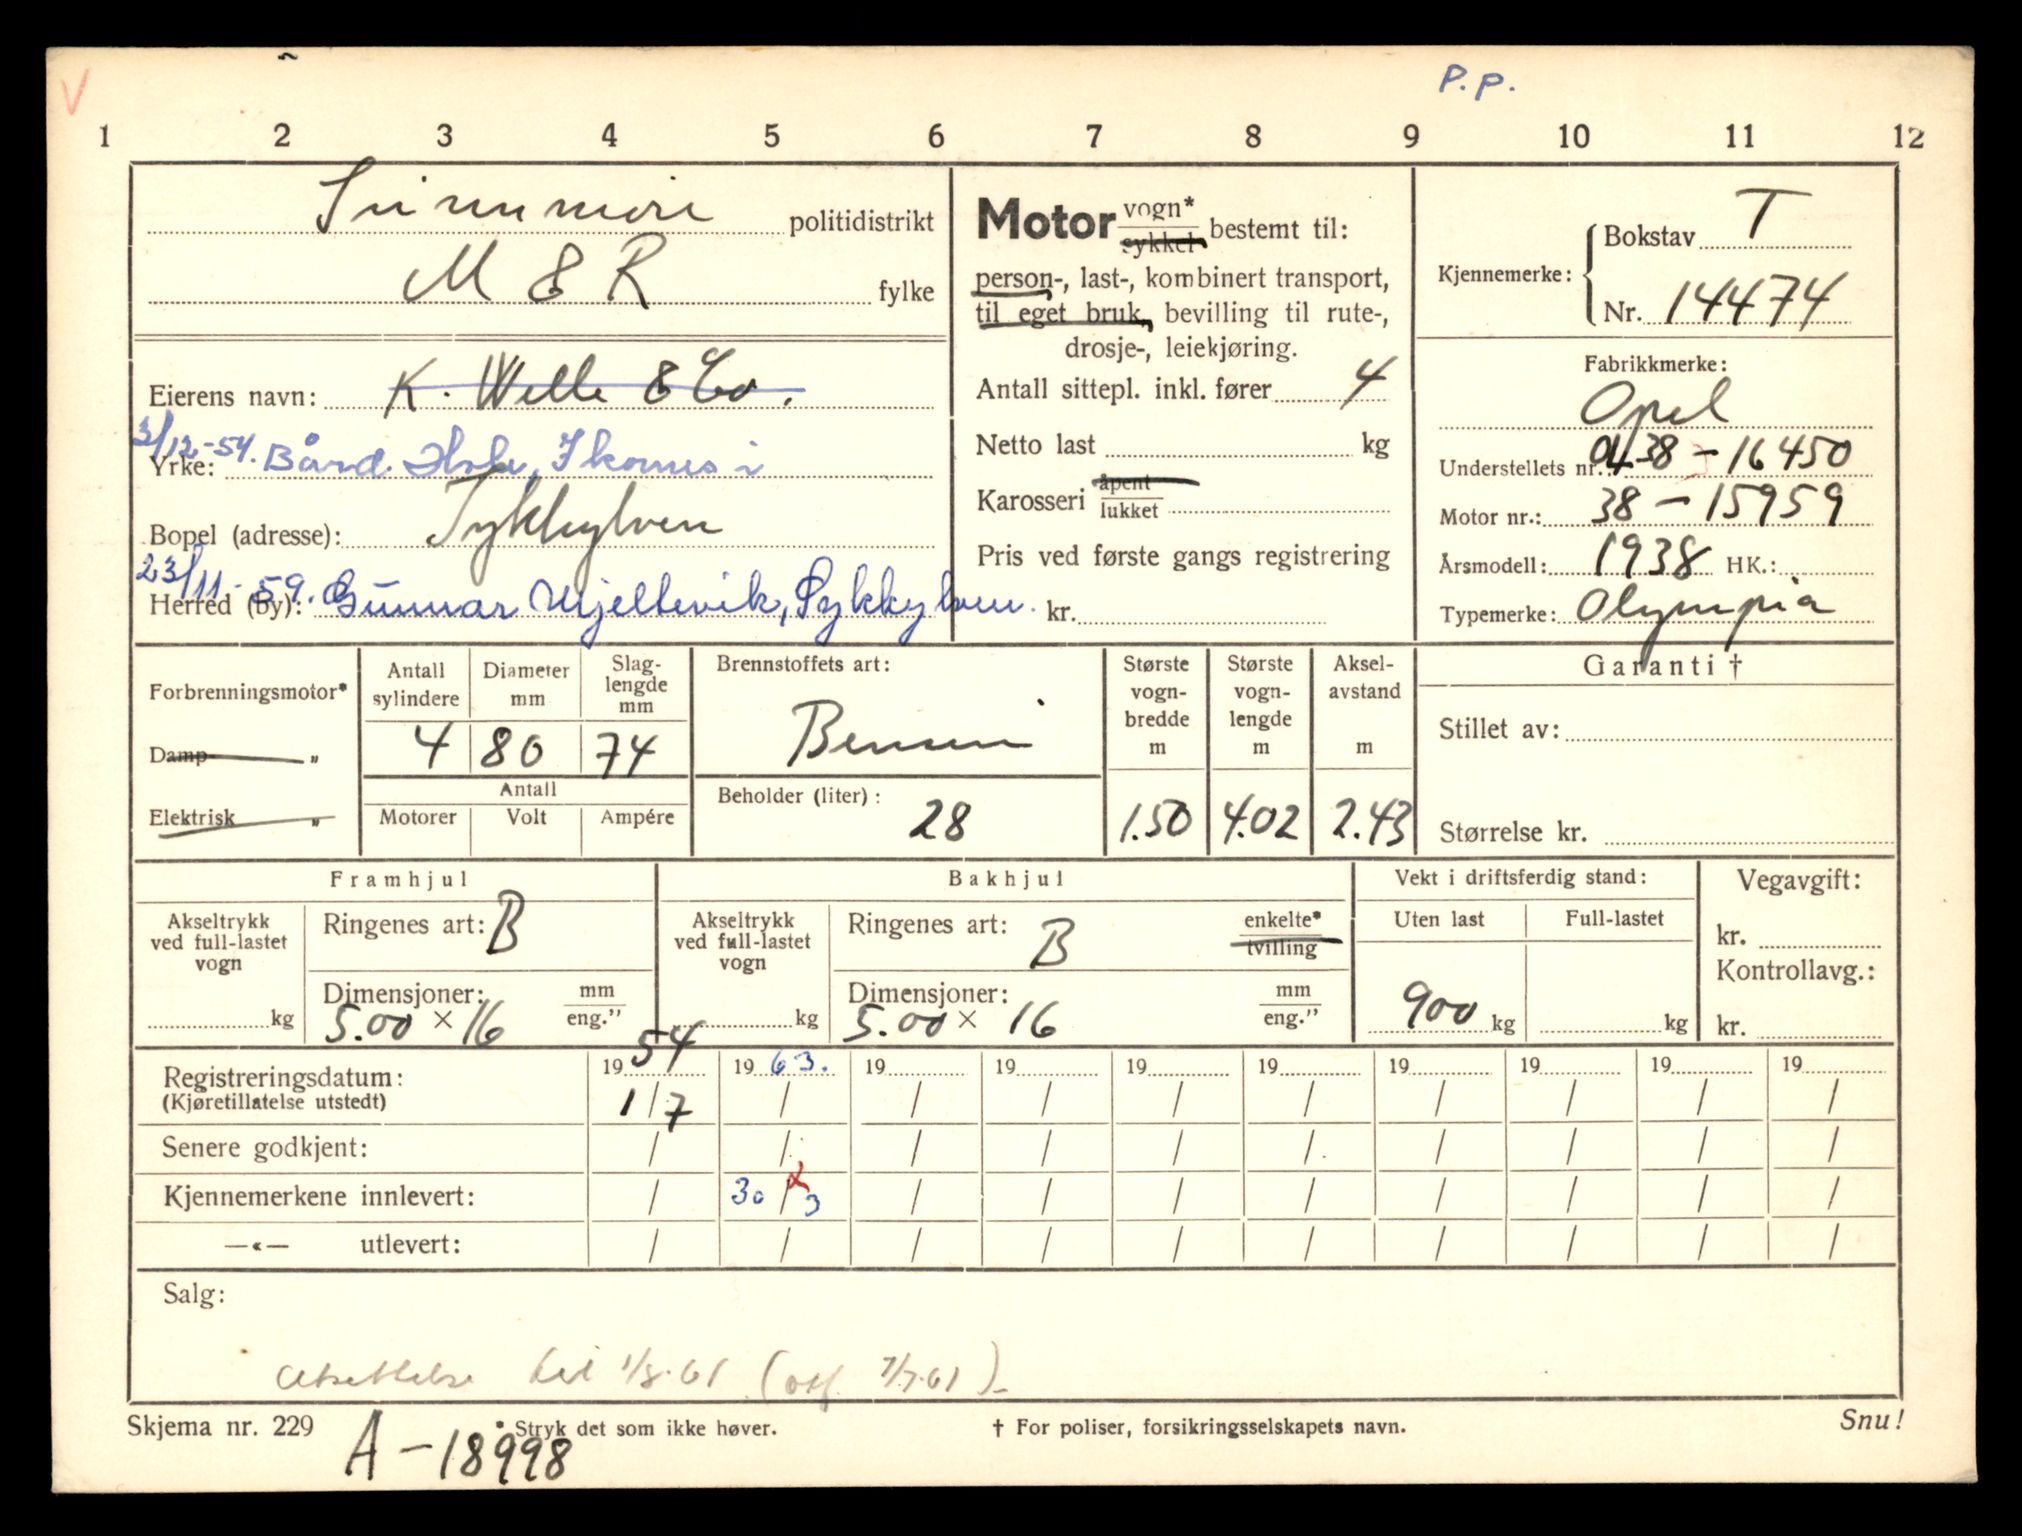 P.P.
V
1 2 3 4 5 6 7 8 9 10 11 12
Sunnmøre politidistrikt
M & R fylke
Eierens navn: K. Welle & Co.
3/12-54. Bård Hole, Ikornnes i
Yrke:
Bopel (adresse): Sykkylven
23/11-59. Gunnar Mjeltevik, Sykkylven.
Herred (by):
Motor vogn* / sykkel bestemt til:
person-, last-, kombinert transport,
til eget bruk, bevilling til rute-,
drosje-, leiekjøring.
Antall sittepl. inkl. fører 4
Netto last kg
Karosseri åpent / lukket
Pris ved første gangs registrering
kr.
Kjennemerke: Bokstav T
Nr. 14474
Fabrikkmerke:
Opel
Understellets nr.: OL38-16450
Motor nr.: 38-15959
Årsmodell: 1938 HK.:
Typemerke: Olympia
Forbrenningsmotor*
Damp- „
Elektrisk „
Antall sylindere Diameter mm Slaglengde mm
4 80 74
Antall
Motorer Volt Ampére
Brennstoffets art:
Bensin
Beholder (liter):
28
Største vogn-bredde m 1.50
Største vogn-lengde m 4.02
Aksel-avstand m 2.43
Garanti †
Stillet av:
Størrelse kr.
Framhjul
Akseltrykk ved full-lastet vogn kg
Ringenes art: B
Dimensjoner: mm / eng."
5.00 × 16
Bakhjul
Akseltrykk ved full-lastet vogn kg
Ringenes art: B enkelte* / tvilling
Dimensjoner: mm / eng."
5.00 × 16
Vekt i driftsferdig stand:
Uten last Full-lastet
900 kg kg
Vegavgift:
kr.
Kontrollavg.:
kr.
Registreringsdatum: 1954 1963. 19 19 19 19 19 19 19 19
(Kjøretillatelse utstedt) 1/7 / / / / / / / / /
Senere godkjent: / / / / / / / / / /
Kjennemerkene innlevert: / 30/3 / / / / / / / /
—«— utlevert: / / / / / / / / / /
Salg:
Utsettelse til 1/8-61 ( 7/7-61)
Skjema nr. 229
* Stryk det som ikke høver.
† For poliser, forsikringsselskapets navn.
Snu!
A-18998